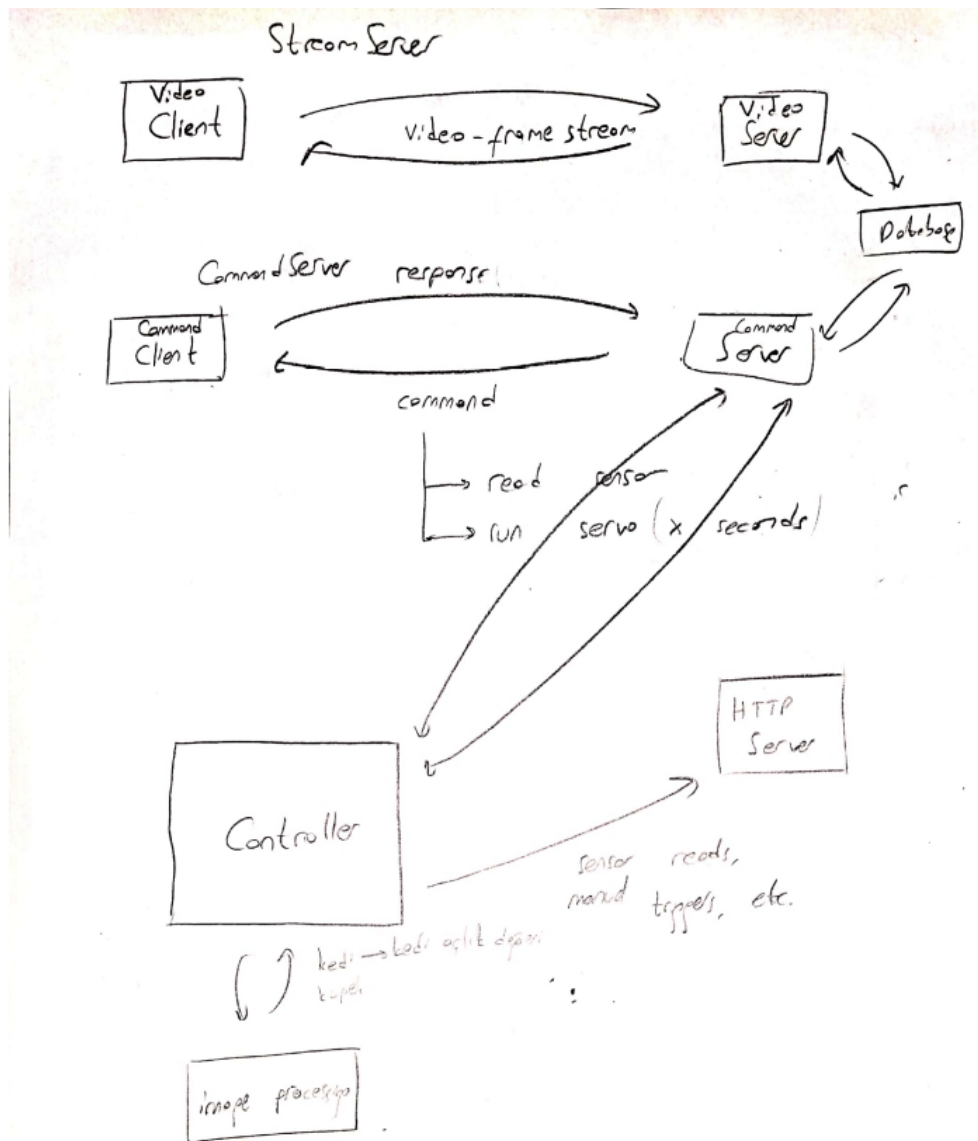 Stream Server
Video
Client
Video
Server
Video-frame stream
Database
Command Server response
Command
Client
Command
Server
command
read sensor
run servo (x seconds)
HTTP
Server
Controller
sensor reads,
manual triggers, etc.
kedi → kedi
image processing